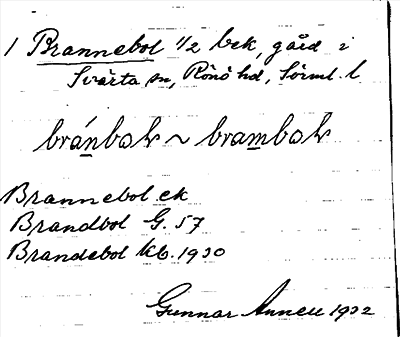 1 Brannebol 1/2 bek, gård i
Svärta sn, Rönö hd, Sörml. l.
bránboƚv ~ bramboƚv
Brannebol ek
Brandbol G. 57
Brandebol kb. 1930
Gunnar Annell 1932